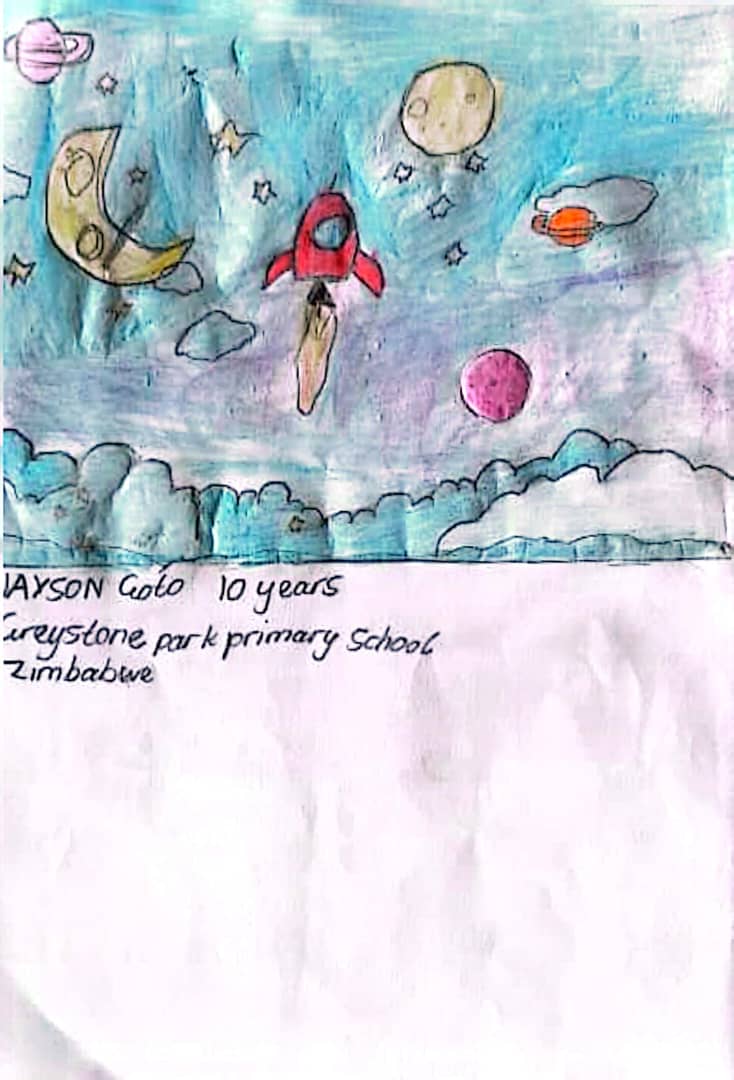 AYSON Goto 10 years
Greystone park primary School
Zimbabwe